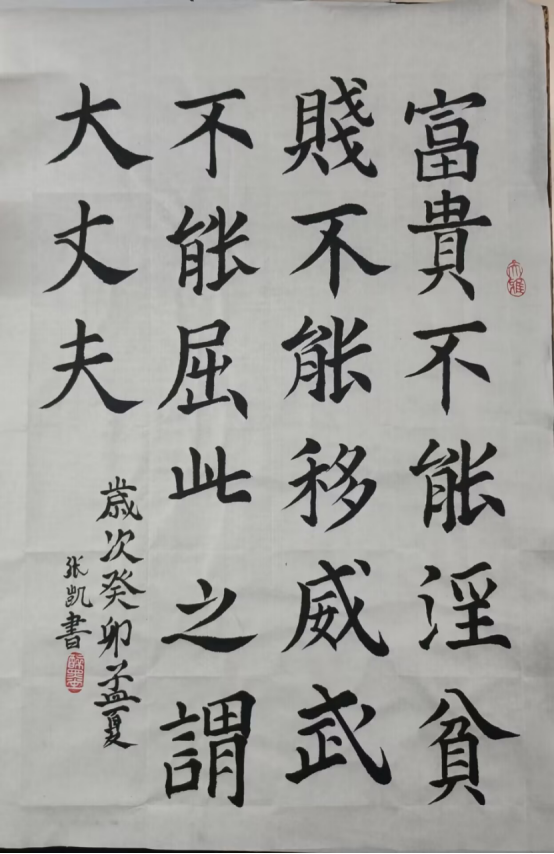 富貴不能淫貧
賤不能移威武
不能屈此之謂
大丈夫
歲次癸卯孟夏
张凯書